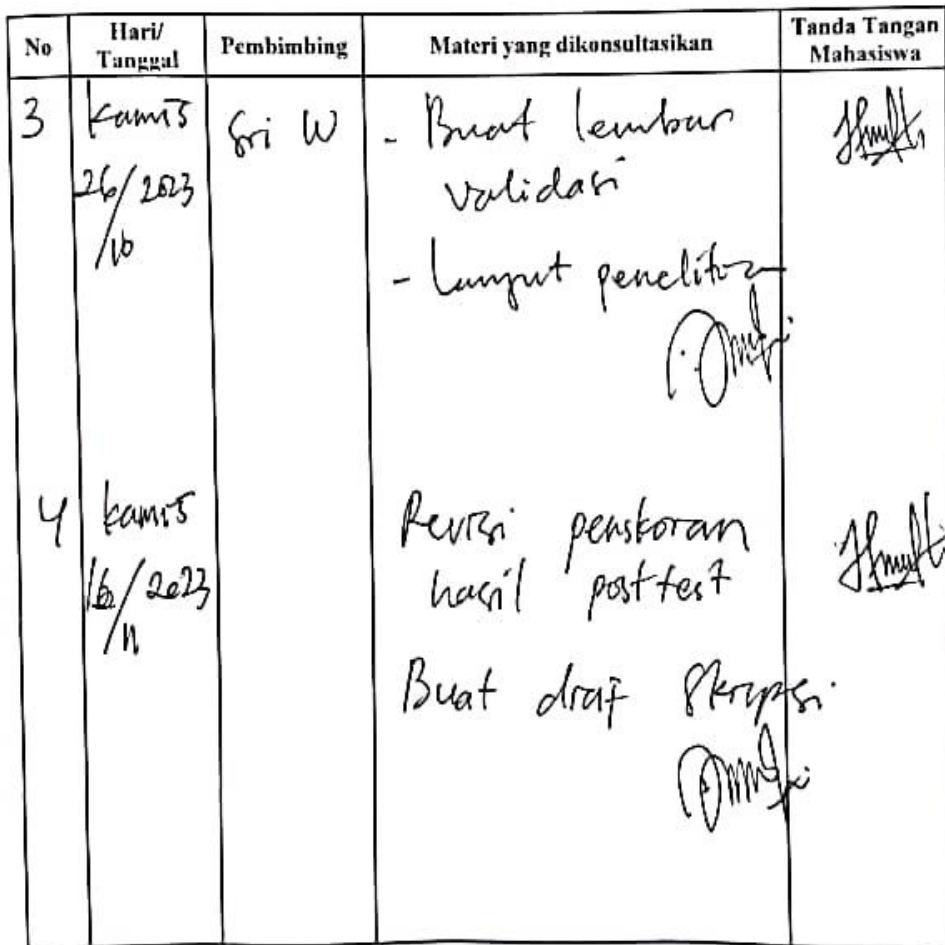 No Hari/ Tanggal Pembimbing Materi yang dikonsultasikan Tanda Tangan Mahasiswa
3 Kamis Sri W - Buat lembar
26/2023 validasi
/10
- Lanjut penelitian
4 kamis Revisi penskoran
16/2023 hasil posttest
/11
Buat draf Skripsi